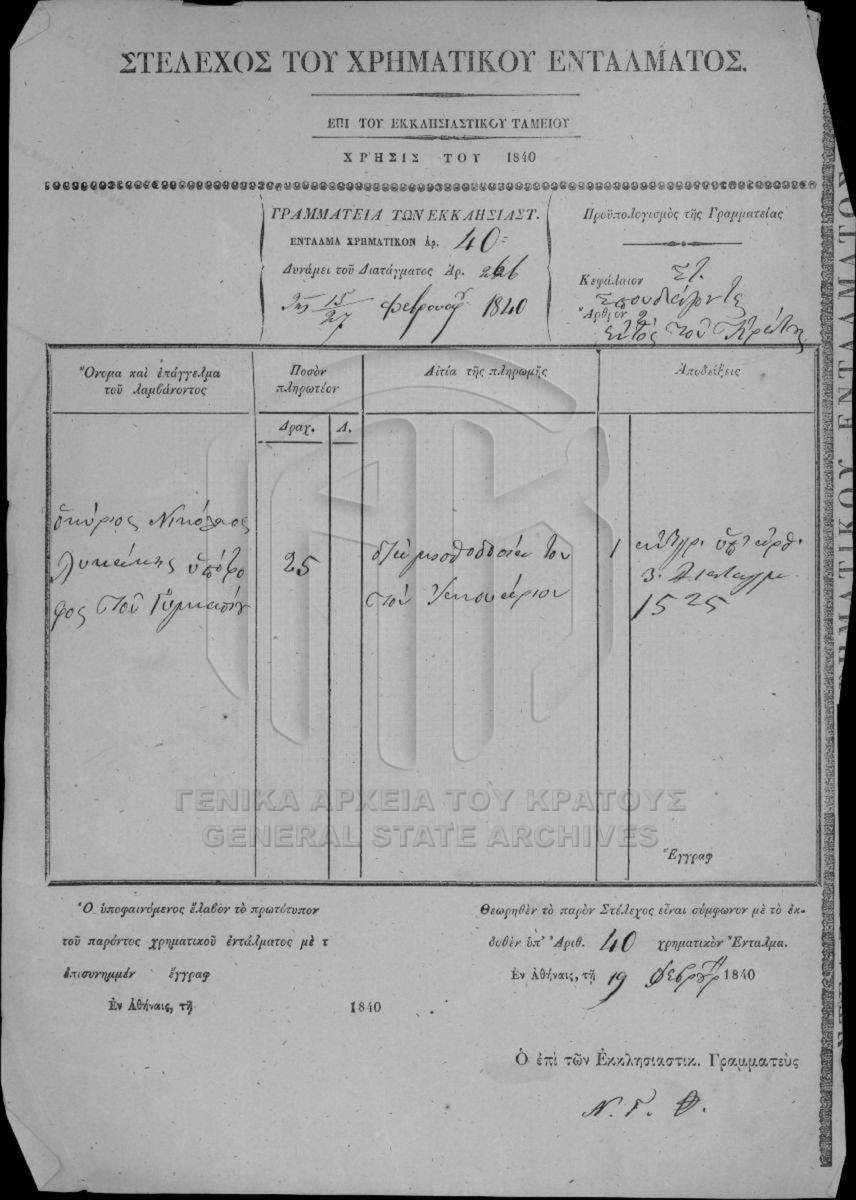 ΣΤΕΛΕΧΟΣ ΤΟΥ ΧΡΗΜΑΤΙΚΟΥ ΕΝΤΑΛΜΑΤΟΣ.
ΕΠΙ ΤΟΥ ΕΚΚΛΗΣΙΑΣΤΙΚΟΥ ΤΑΜΕΙΟΥ
ΧΡΗΣΙΣ ΤΟΥ 1840
ΓΡΑΜΜΑΤΕΙΑ ΤΩΝ ΕΚΚΛΗΣΙΑΣΤ.
ΕΝΤΑΛΜΑ ΧΡΗΜΑΤΙΚΟΝ ἀρ. 40=
Δυνάμει τοῦ Διατάγματος Ἀρ.
τῆς 15/27 Φεβρουαρ 1840
Προϋπολογισμὸς τῆς Γραμματείας
Κεφάλαιον ΣΤ.
Σπουδάζοντες
Ἄρθρον 2
ἐντὸς τοῦ Κράτους
Ὄνομα καὶ ἐπάγγελμα
τοῦ λαμβάνοντος
Ποσὸν
πληρωτέον
Αἰτία τῆς πληρωμῆς
Ἀποδείξεις
Δραχ.
Λ.
ὁ κύριος Νικόλαος
Λυκάκης ὑπότρο
φος στοῦ Γυμνασίου
25
διὰ μισθοδοσίαν του
τὸν Ἰανουάριον
1
ἀντίγρ. ὑπ' ἀριθ.
Διαταγμ.
1525
ΓΕΝΙΚΑ ΑΡΧΕΙΑ ΤΟΥ ΚΡΑΤΟΥΣ
GENERAL STATE ARCHIVES
Ἔγγραφ
Ὁ ὑποφαινόμενος ἔλαβον τὸ πρωτότυπον
τοῦ παρόντος χρηματικοῦ ἐντάλματος μὲ τ
ἐπισυνημμέν ἔγγραφ
Ἐν Ἀθήναις, τῇ 1840
Θεωρηθὲν τὸ παρὸν Στέλεχος εἶναι σύμφωνον μὲ τὸ ἐκ-
δοθὲν ὑπ' Ἀριθ. 40 χρηματικὸν Ἔνταλμα.
Ἐν Ἀθήναις, τῇ 19 Φεβρ 1840
Ὁ ἐπὶ τῶν Ἐκκλησιαστικ. Γραμματεὺς
Ν. Γ. Θ.